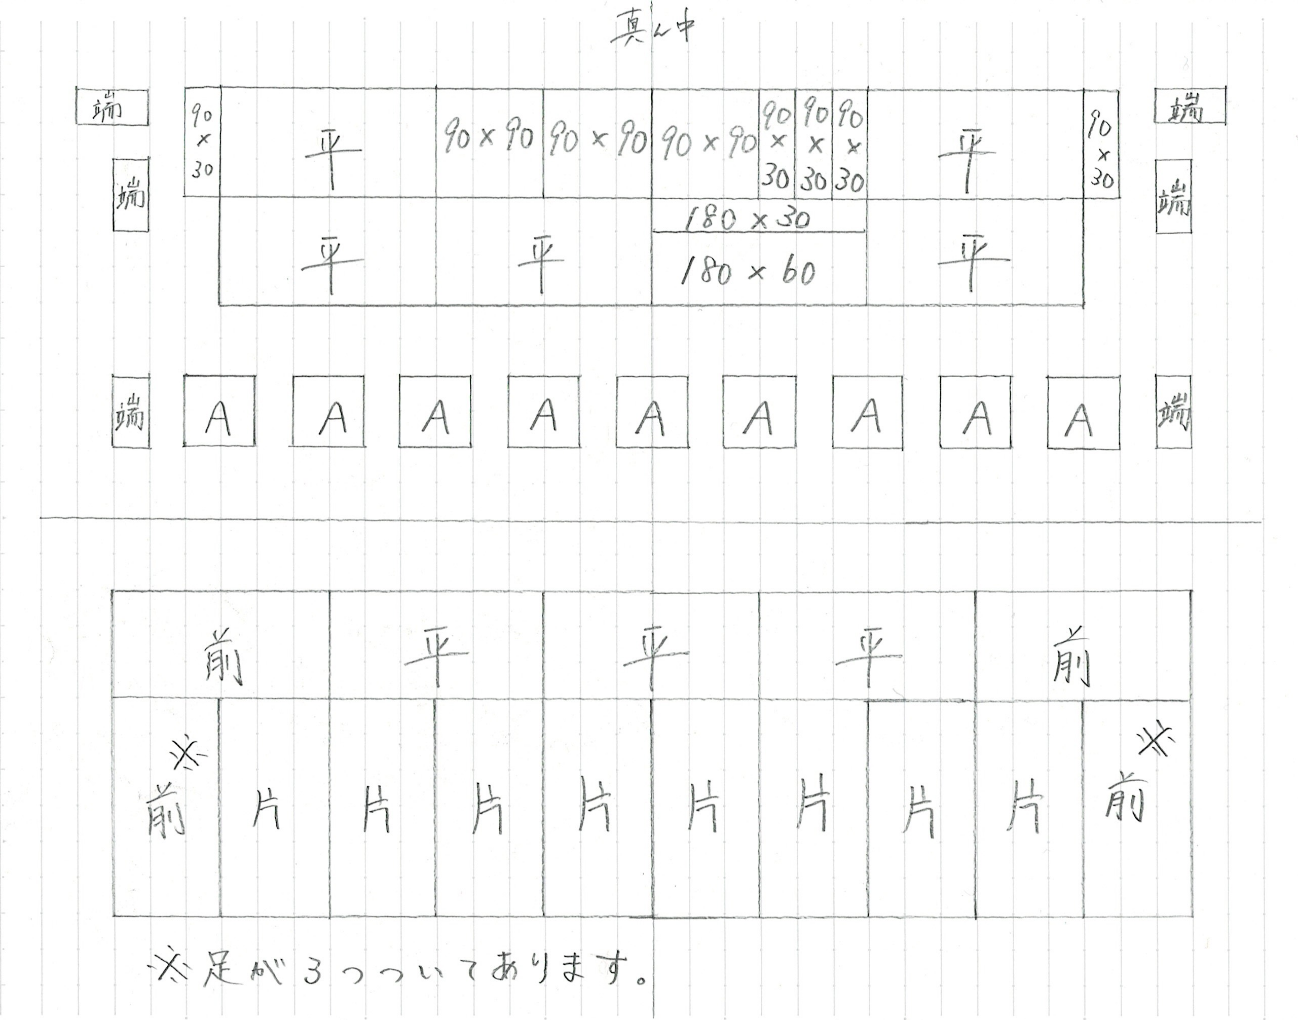 真ん中
端 90×30 平 90×90 90×90 90×90 90×30 90×30 90×30 平 90×30 端
端 端
平 平 180×30 平
180×60
端 A A A A A A A A A 端
前 平 平 平 前
※ ※
前 片 片 片 片 片 片 片 片 前
※足が3つついてあります。